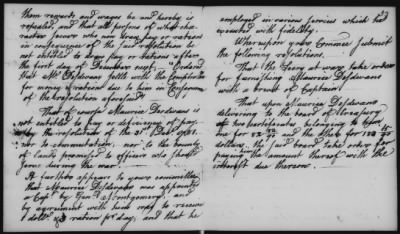 them rewards, and wages be and hereby is
repealed, and that all persons of what cha-
racter soever who now draw pay or rations
in consequence of the said resolution be
not entitled to draw pay or rations after
the first day of December next. And
that Mr Desdevans settle with the Comptroller
for money & rations due to him in Consequence
of the resolution aforesaid.
That of course Maurice Desdevans is
not entitled to pay or deficiency of pay
by the resolution of the 31st Decr 1781.
nor to commutation, nor to the bounty
of lands promised to officers who should
serve during the war
It further appears to your committee
that Maurice Desdevans was appointed
a Capt by Genl Montgomery, and
by agreement with him was to receive
a dollr & ration pr day, and that he
employed in various services which he
executed with fidelity.
Whereupon your Commee submit
the following resolutions.
That the Secy at war take order
for furnishing Maurice Desdevans
with a brevet of Captain
That upon Maurice Desdevans
delivering to the board of treasury
the certificates belonging to him
one for 82 and the other for 128
dollars. the said board take order for
paying him the amount thereof with the
interest due thereon.